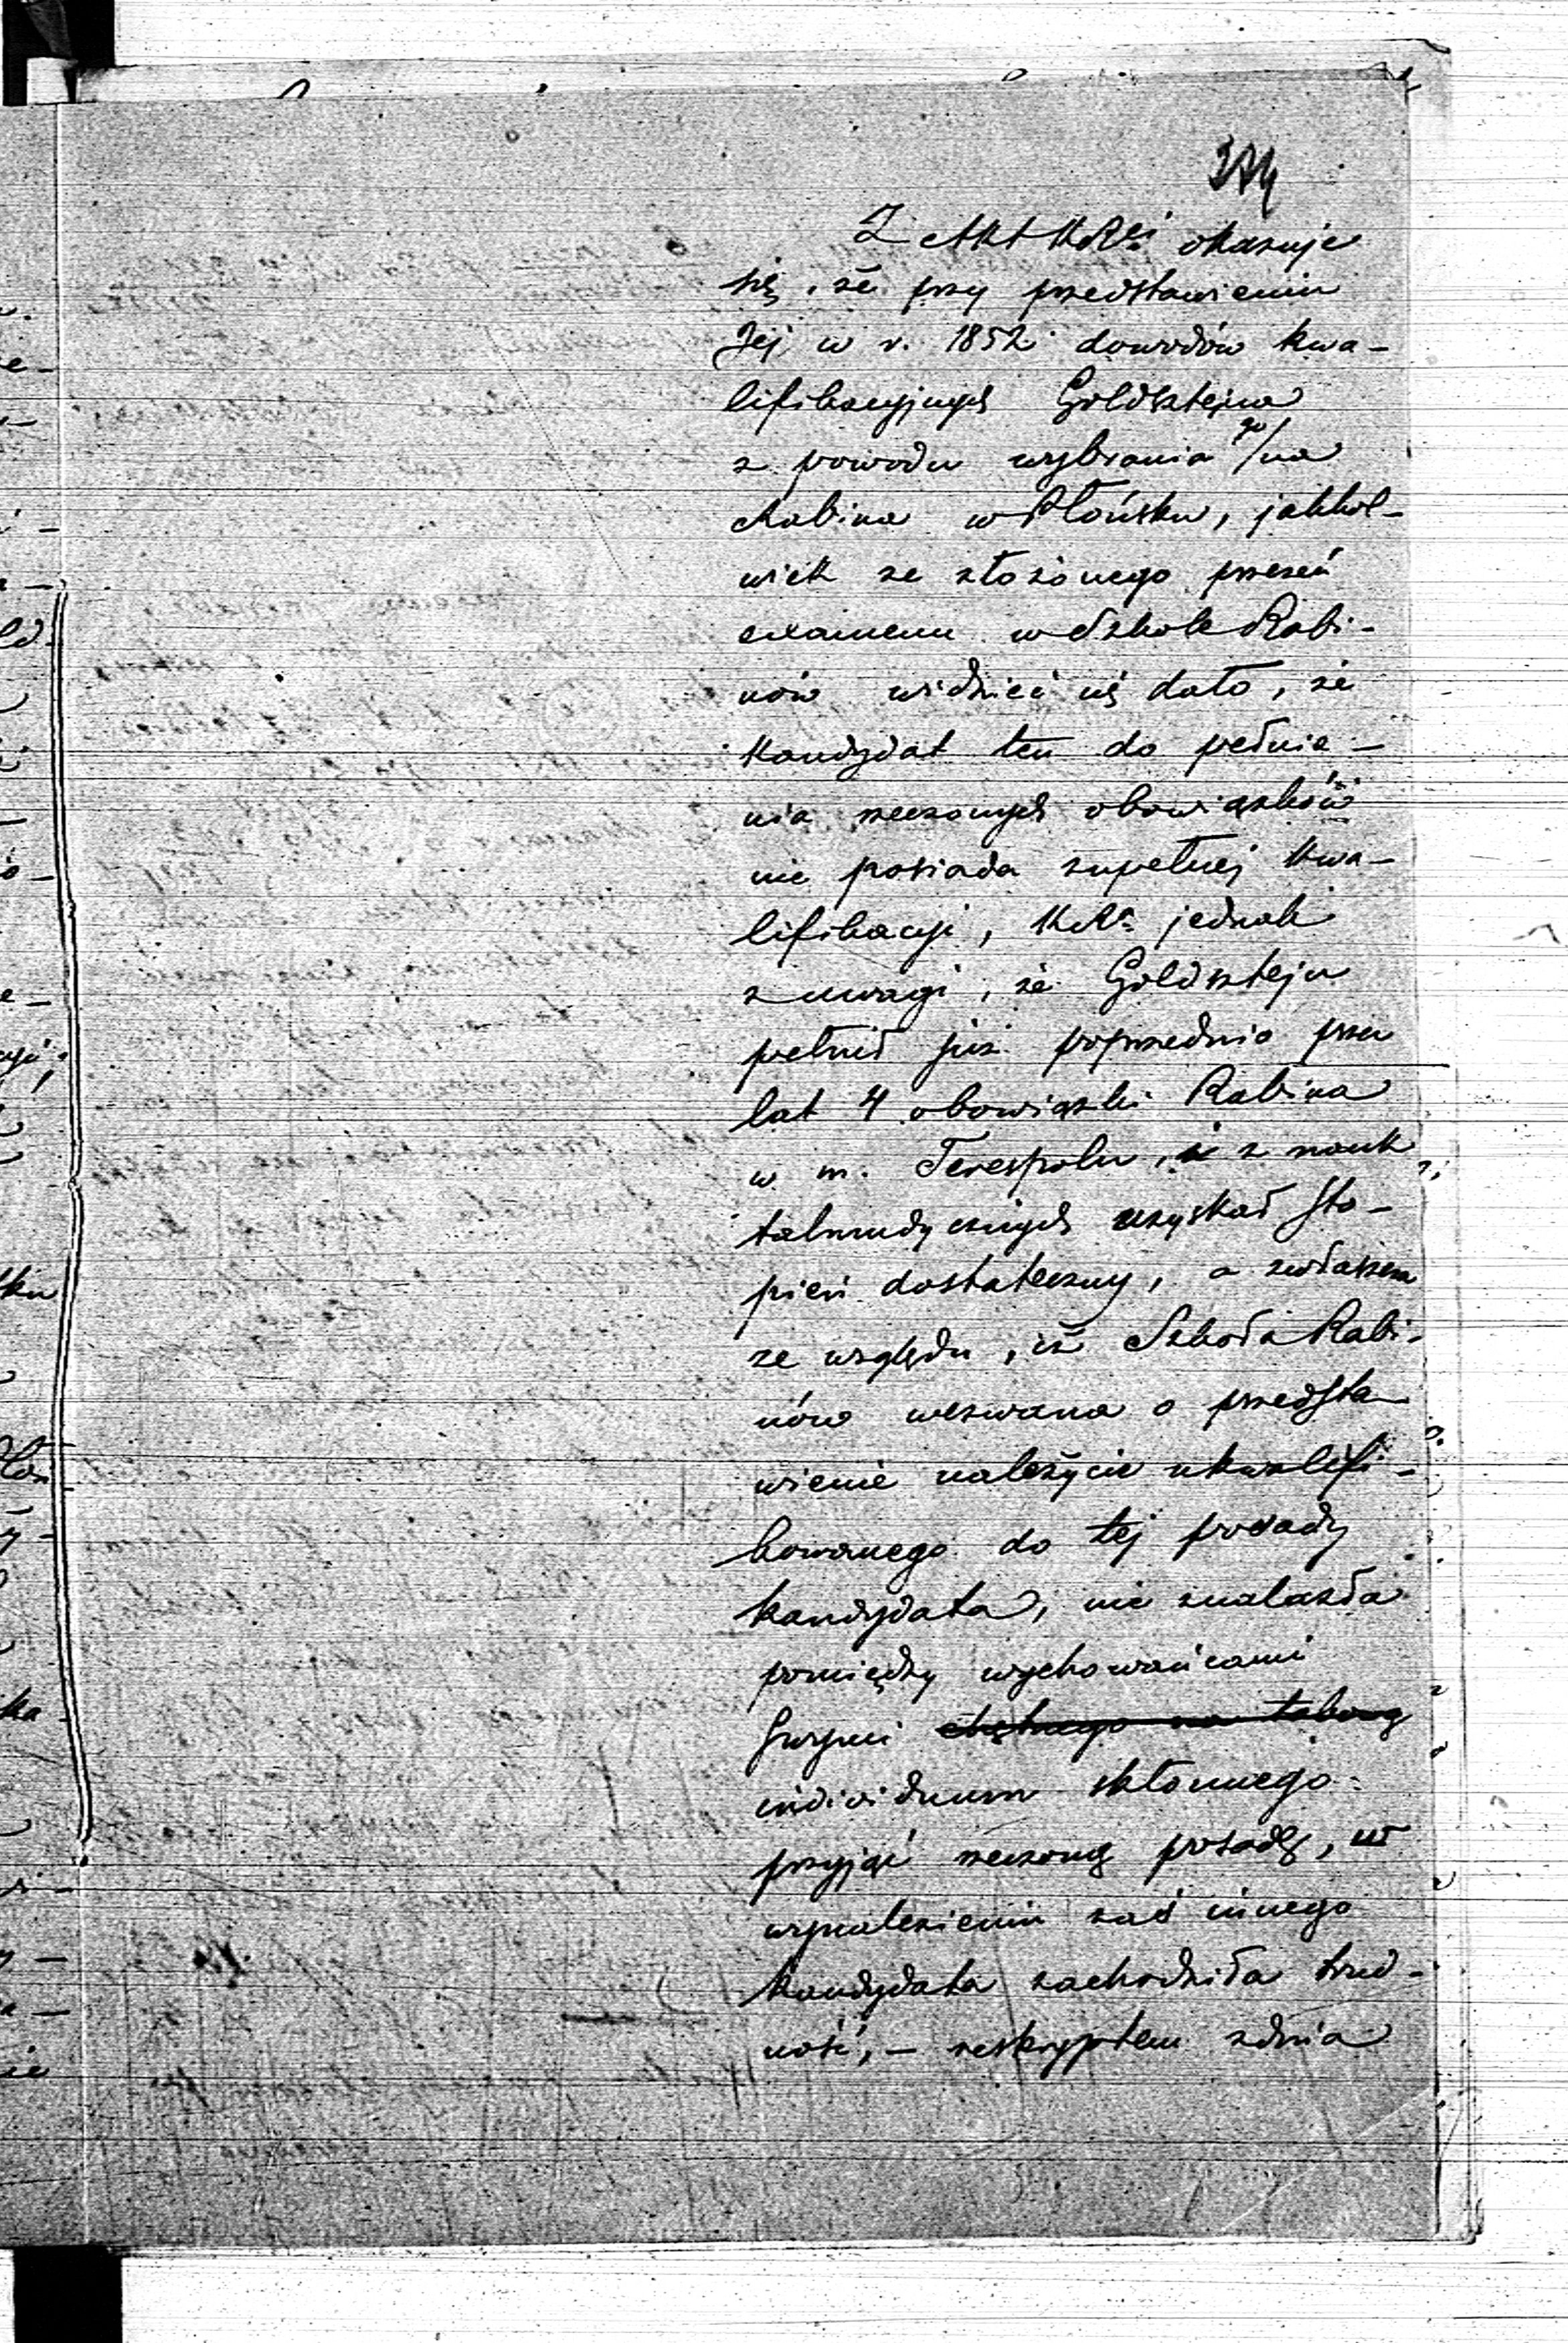 374
Z Akt KRei okazuje
się, że przy przedstawieniu
Jej w r. 1852 dowodów kwa-
lifikacyjnych Goldsztejna
z powodu wybrania go/na
Rabina w Płońsku, jakkol-
wiek ze złożonego przezeń
examenu w Szkole Rabi-
nów widzieć się dało, że
kandydat ten do pełnie-
nia rzeczonych obowiązków
nie posiada zupełnej kwa-
lifikacyi, KRa jednak
z uwagi, że Goldsztejn
pełnił już poprzednio przez
lat 4 obowiązki Rabina
w m. Terespolu, i z nauk
talmudycznych uzyskał sto-
pień dostateczny, a zwłaszcza
ze względu, iż Szkoła Rabi-
nów wezwana o przedsta-
wienie należycie ukwalifi-
kowanego do tej posady
kandydata, nie znalazła
pomiędzy wychowańcami
swymi chętnego na takową
individuum skłonnego
przyjąć rzeczoną posadę, w
wynalezieniu zaś innego
kandydata zachodziła trud-
ność, – reskryptem z dnia